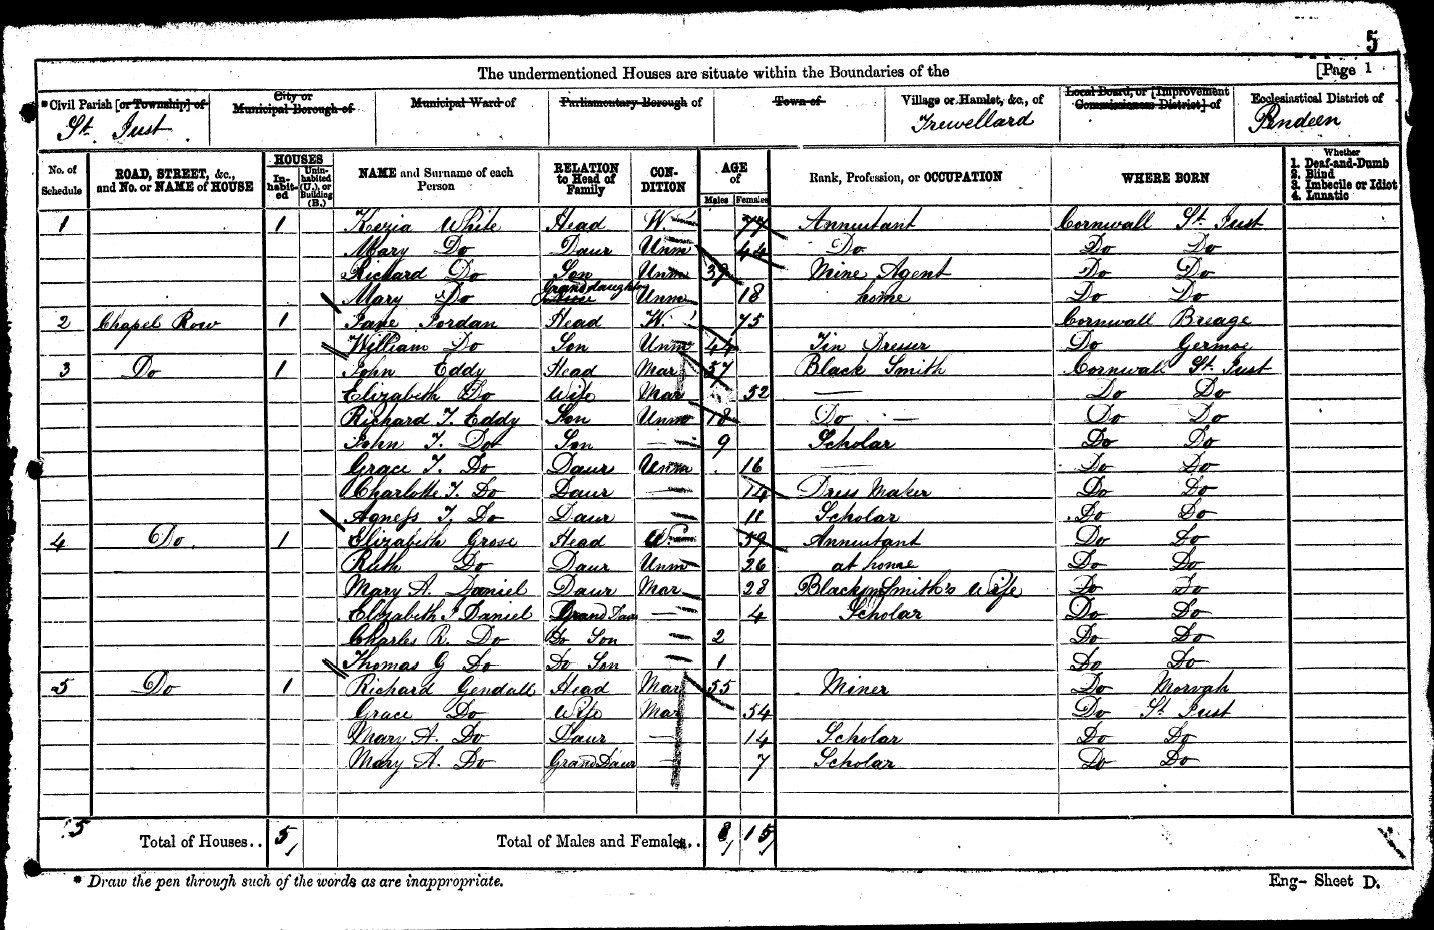 5
The undermentioned Houses are situate within the Boundaries of the [Page 1
*Civil Parish [or Township] of City or Municipal Borough of Municipal Ward of Parliamentary Borough of Town of Village or Hamlet, &c., of Local Board, or [Improvement Commissioners District] of Ecclesiastical District of
St. Just Trewellard Pendeen
No. of Schedule ROAD, STREET, &c., and No. or NAME of HOUSE HOUSES Inhabited Uninhabited (U.), or Building (B.) NAME and Surname of each Person RELATION to Head of Family CONDITION AGE of Males Females Rank, Profession, or OCCUPATION WHERE BORN Whether 1. Deaf-and-Dumb 2. Blind 3. Imbecile or Idiot 4. Lunatic
1 1 Kezia White Head W. 77 Annuitant Cornwall St. Just
Mary Do Daur Unm 44 Do Do Do
Richard Do Son Unm 39 Mine Agent Do Do
Mary Do Granddaughter Unm 18 home Do Do
2 Chapel Row 1 Jane Jordan Head W. 75 Cornwall Breage
William Do Son Unm 44 Tin Dresser Do Germoe
3 Do 1 John Eddy Head Mar 57 Black Smith Cornwall St. Just
Elizabeth Do Wife Mar 52 — Do Do
Richard T. Eddy Son Unm 18 Do — Do Do
John T. Do Son — 9 Scholar Do Do
Grace T. Do Daur Unm 16 — Do Do
Charlotte T. Do Daur — 14 Dress Maker Do Do
Agness T. Do Daur — 11 Scholar Do Do
4 Do. 1 Elizabeth Grose Head W. 59 Annuitant Do Do
Ruth Do Daur Unm 26 at home Do Do
Mary A. Daniel Daur Mar 28 Black Smith's Wife Do Do
Elizabeth J Daniel Grand Daur — 4 Scholar Do Do
Charles R. Do Do Son — 2 Do Do
Thomas G Do Do Son — 1 Do Do
5 Do 1 Richard Gendall Head Mar 55 Miner Do Morvah
Grace Do Wife Mar 54 Do St. Just
Mary A. Do Daur — 14 Scholar Do Do
Mary A. Do Grand Daur — 7 Scholar Do Do
5 Total of Houses.. 5 Total of Males and Females.. 8 15
* Draw the pen through such of the words as are inappropriate. Eng- Sheet D.